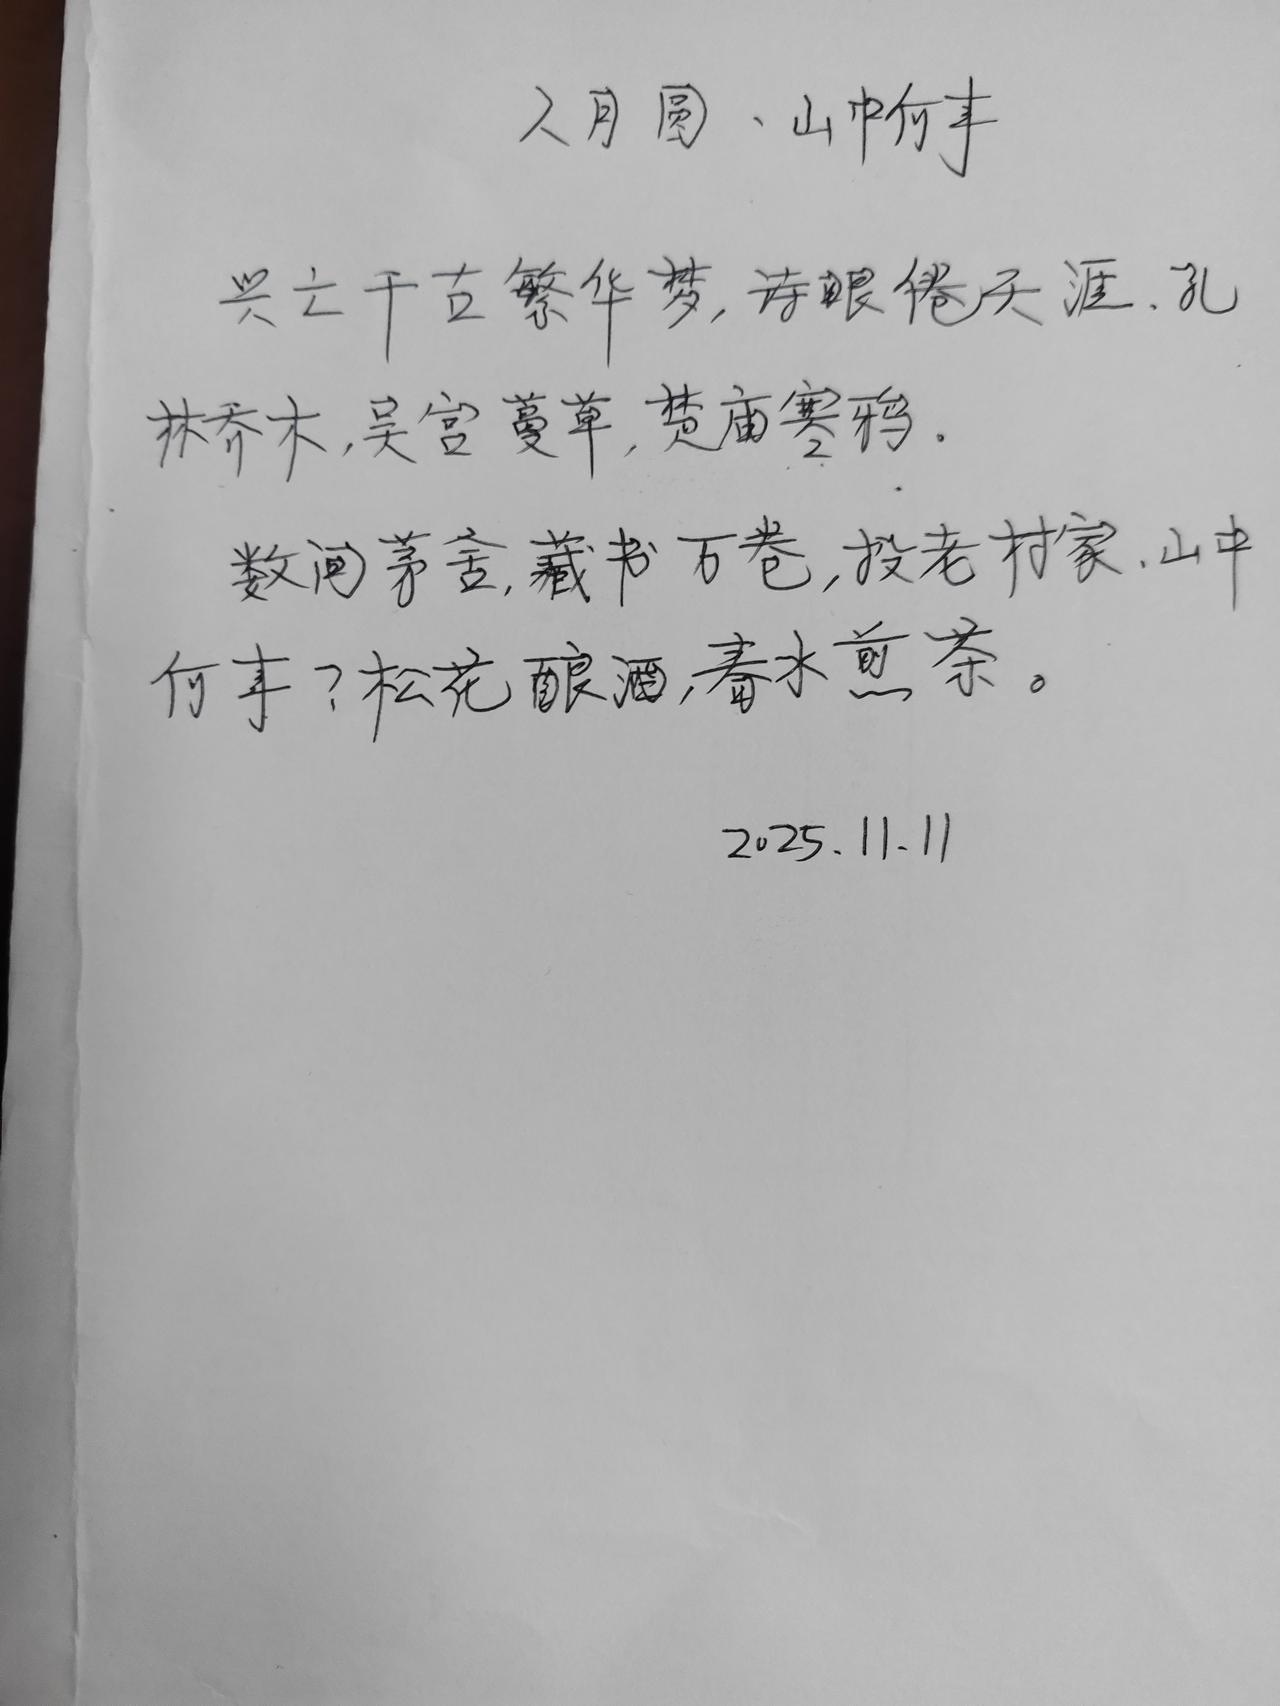 人月圆、山中何事
兴亡千古繁华梦,诗眼倦天涯.孔
林乔木,吴宫蔓草,楚庙寒鸦.
数间茅舍,藏书万卷,投老村家.山中
何事?松花酿酒,春水煎茶。
2025.11.11